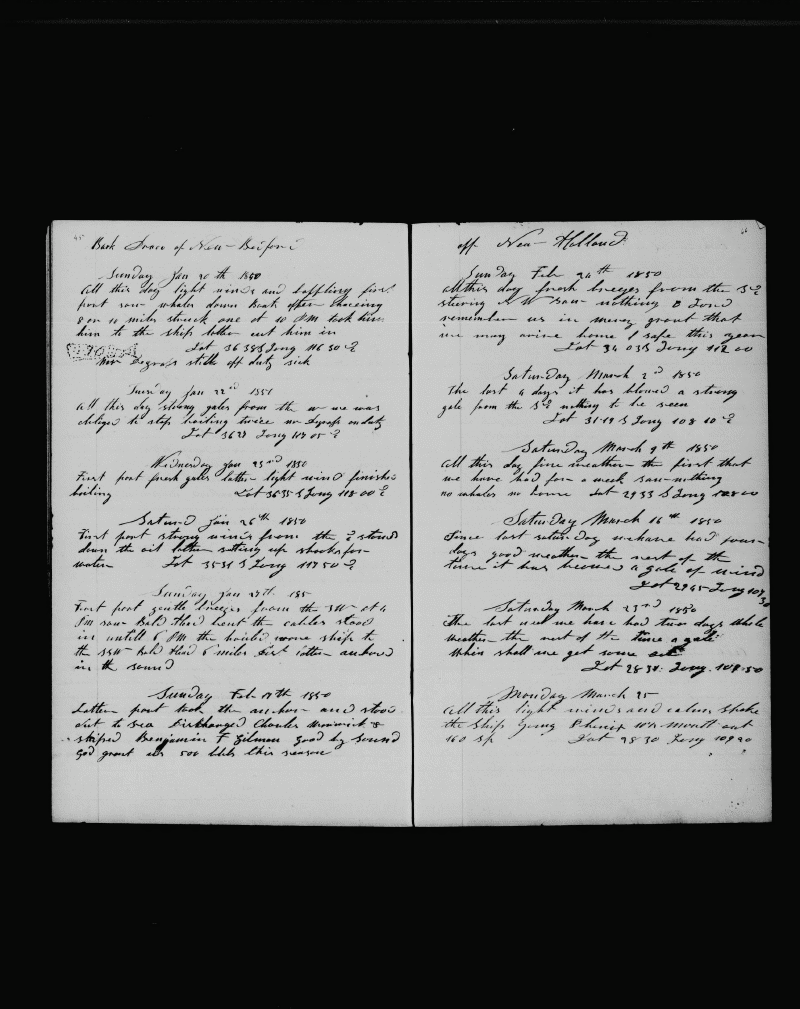 45
Bark Draco of New-Bedford
Sunday Jan 20th 1850
All this day light winds and baffling first
part saw whales down Boats after chaceing
8 or 10 miles struck one at 10 PM took him
him to the ship latter cut him in
Lat 36 38 S Long 116 30 E
Degrass still off duty sick
Tuesday Jan 22nd 1850
All this day strong gales from the w we was
obliged to stop boiling twice on duty
Lat 36 21 Long 117 05 E
Wednesday Jan 23rd 1850
First part fresh gales latter light wind finished
boiling Lat 36 35 S Long 118 00 E
Saturd Jan 26th 1850
First part strong winds from the E stowed
down the oil latter setting up shooks for
water Lat 35 31 S Long 117 50 E
Sunday Jan 27th 185
First part gentle breezes from the SW at 4
PM saw Bald Head bent the cables stood
in untill 6 PM the hauld wore ship to
the SSW Bald Head 6 miles Dist latter anchored
in the sound
Sunday Feb 17th 1850
Latter part took the anchor and stood
out to sea Discharged Charles &
shiped Benjamin F Gilman Good by Sound
God grant us 500 bbls this season
66
off New-Holland
Sunday Feb 24th 1850
All this day fresh breezes from the SE
stering NW saw nothing O Lord
remember us in mercy grant that
we may arive home safe this year
Lat 34 03 S Long 112 00
Saturday March 2nd 1850
The last 4 days it has blowed a strong
gale from the SE nothing to be seen
Lat 31 19 S Long 108 10 E
Saturday March 9th 1850
All this day fine weather the first that
we have had for a week saw nothing
no whales no home Lat 29 33 S Long 108 00
Saturday March 16th 1850
Since last saturday we have had four
days good weather the rest of the
time it has blowed a gale of wind
Lat 29 45 Long 107 30
Saturday March 23rd 1850
The last week we have had two days whale
weather the rest of the time a gale
When shall we get some oil
Lat 28 31 Long 109 50
Monday March 25
All this light winds and calms spoke
the Ship Young Phenix months out
160 sp Lat 28 30 Long 109 20